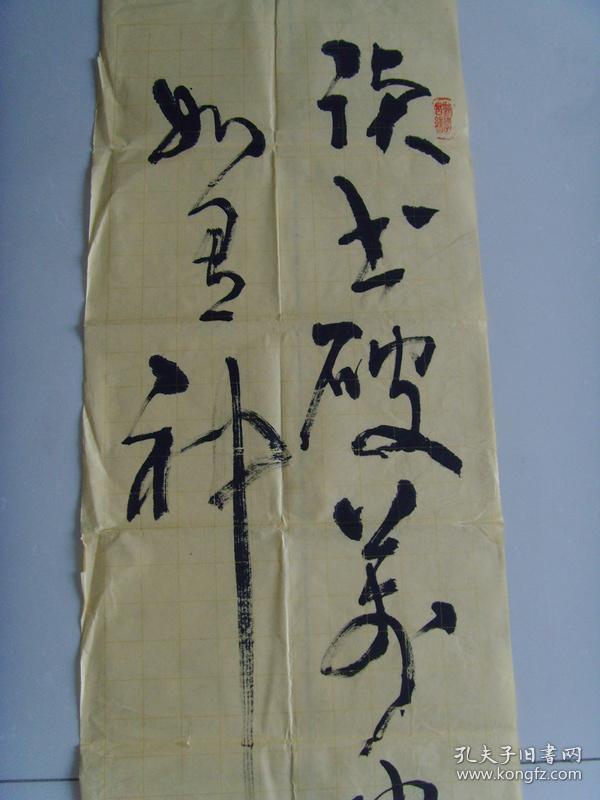 读书破万
如有神
孔夫子旧書网
www.kongfz.com